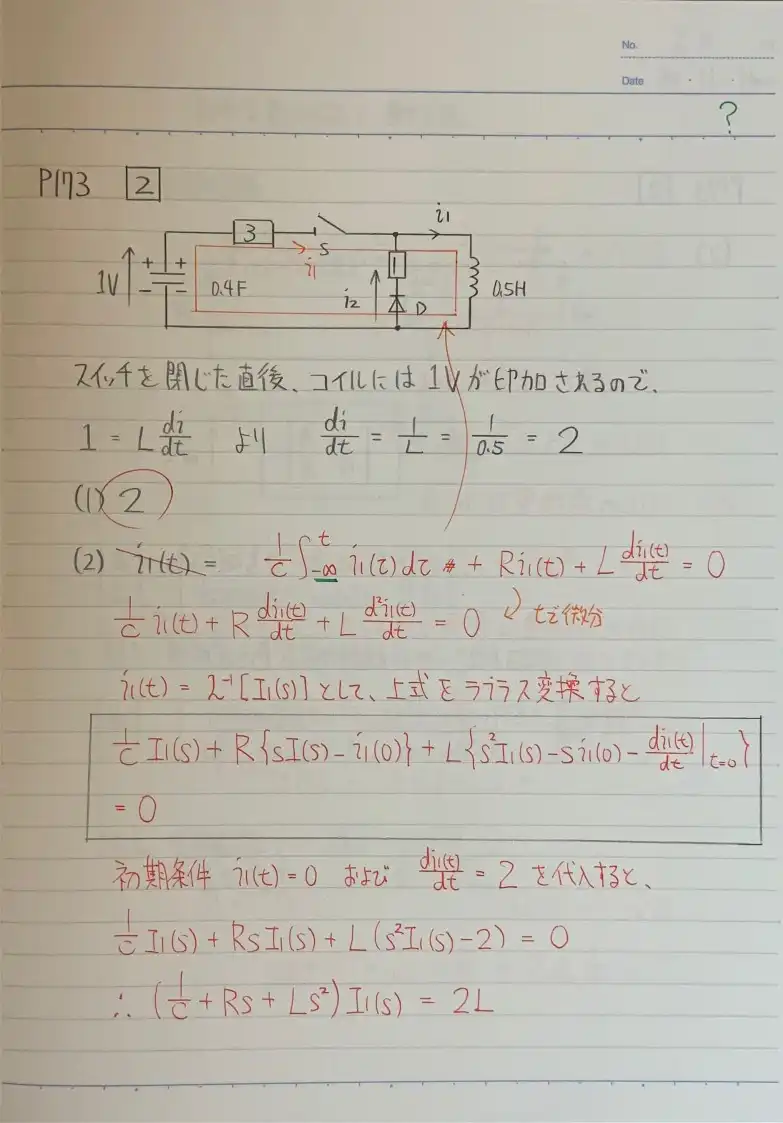 No.
Date
?
P173 2
i1
3
S
i1
1V
+ +
- -
0.4F
i2
1
D
0.5H
スイッチを閉じた直後、コイルには1Vが印加されるので、
1 = L di/dt より di/dt = 1/L = 1/0.5 = 2
(1) 2
(2) i1(t) = 1/C ∫_{-∞}^{t} i1(τ)dτ + Ri1(t) + L di1(t)/dt = 0
1/C i1(t) + R di1(t)/dt + L d²i1(t)/dt = 0 tで微分
i1(t) = L⁻¹[I1(s)]として、上式をラプラス変換すると
1/C I1(s) + R{sI(s) - i1(0)} + L{s²I1(s) - si1(0) - di1(t)/dt |t=0}
= 0
初期条件 i1(t) = 0 および di1(t)/dt = 2 を代入すると、
1/C I1(s) + RsI1(s) + L(s²I1(s) - 2) = 0
∴ (1/C + Rs + Ls²)I1(s) = 2L